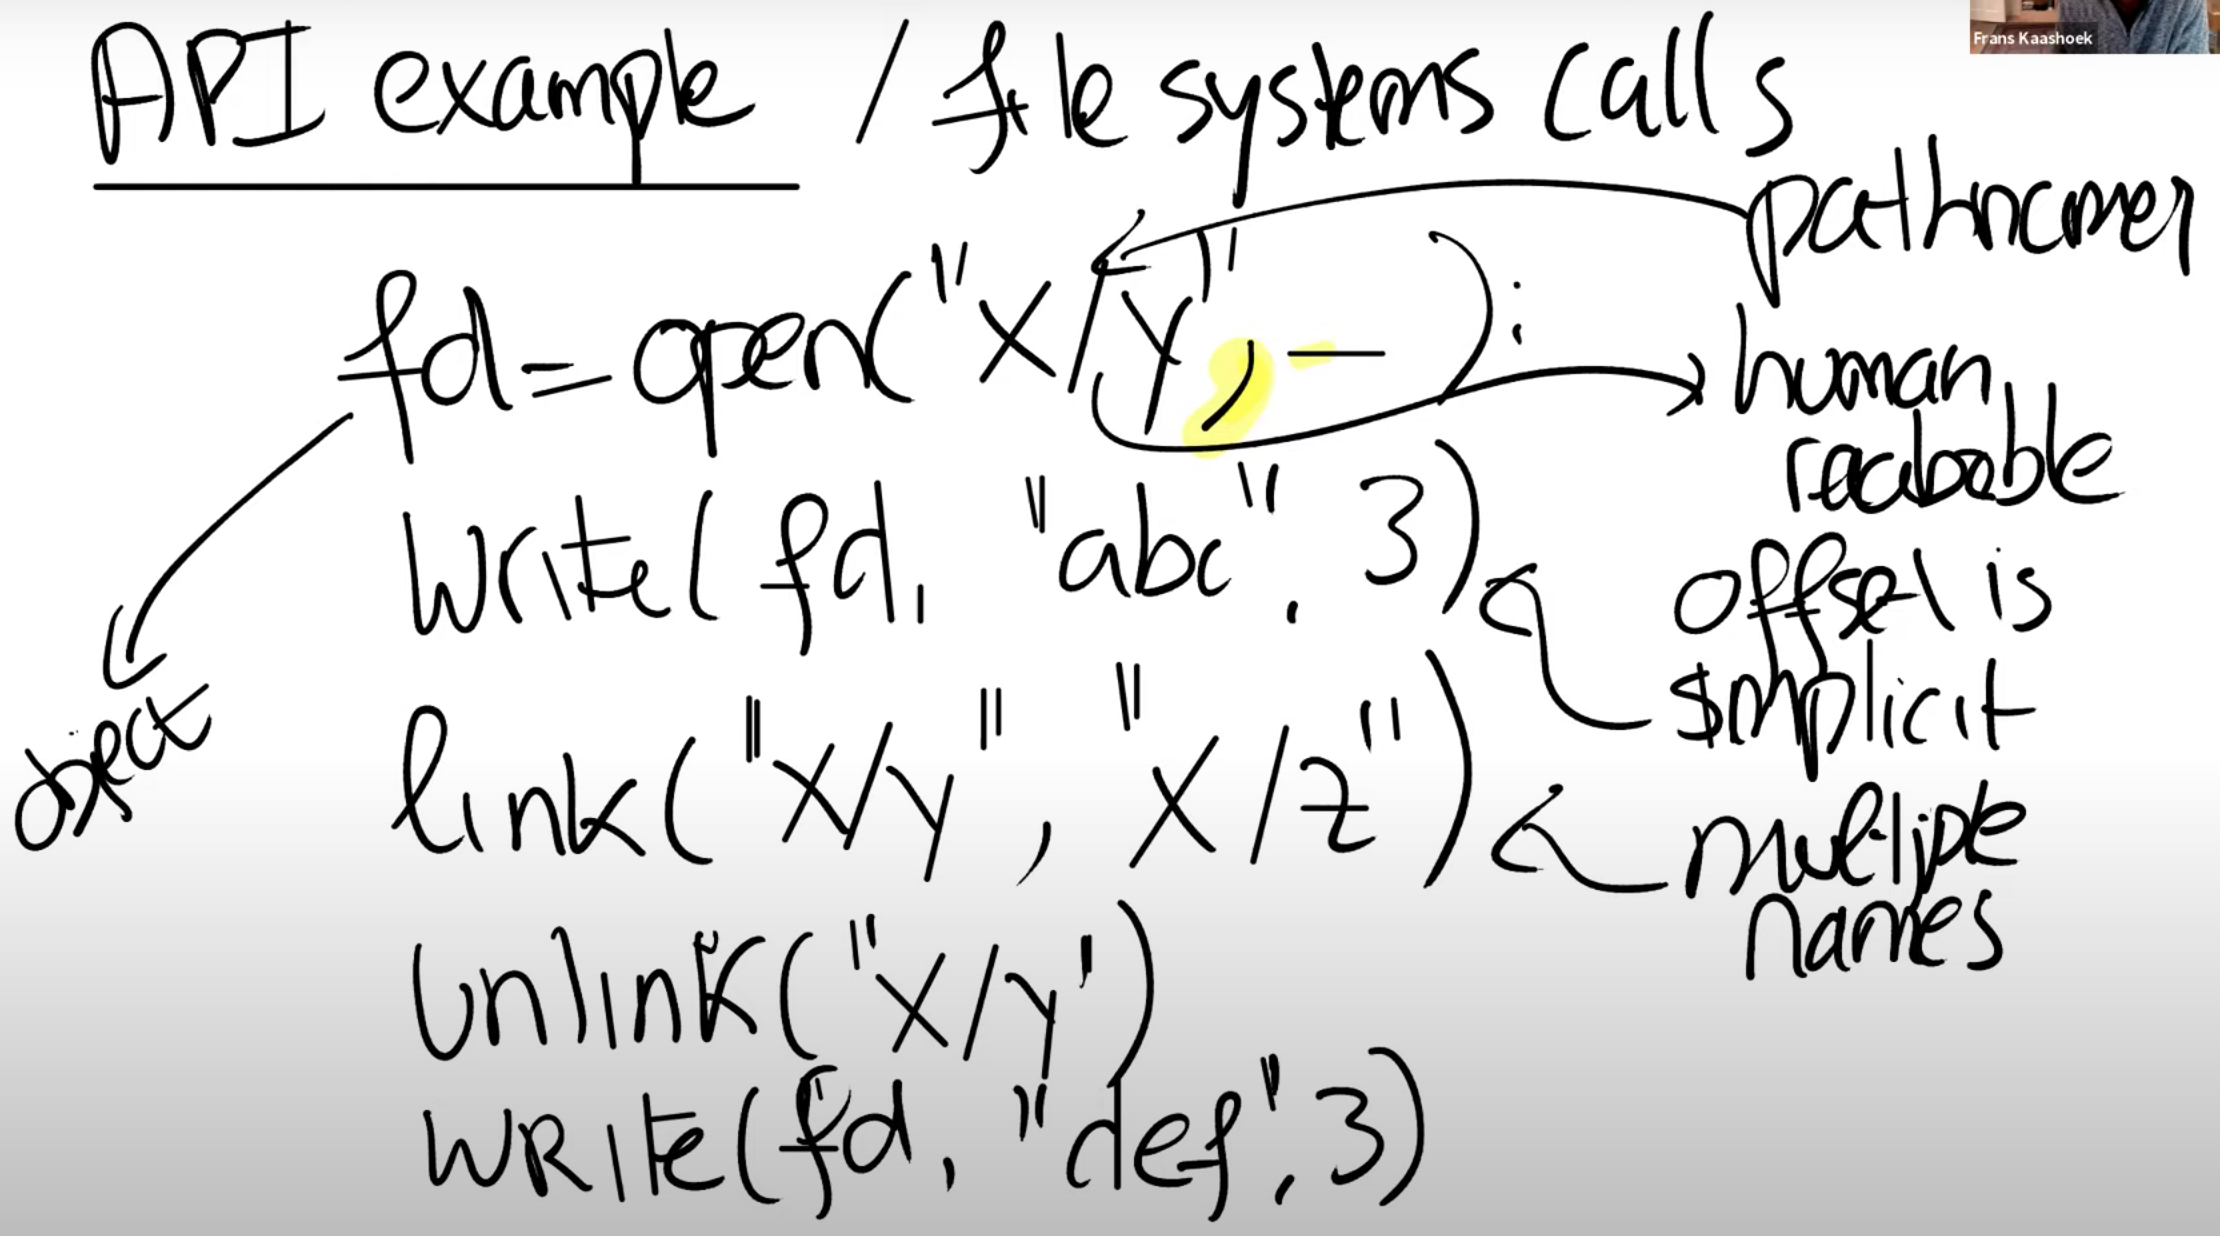 API example / file systems calls
Frans Kaashoek
pathnames
fd = open("x/y", — );
human
readable
write(fd, "abc", 3)
offset is
implicit
object
link("x/y", "x/z")
multiple
names
unlink("x/y")
write(fd, "def", 3)